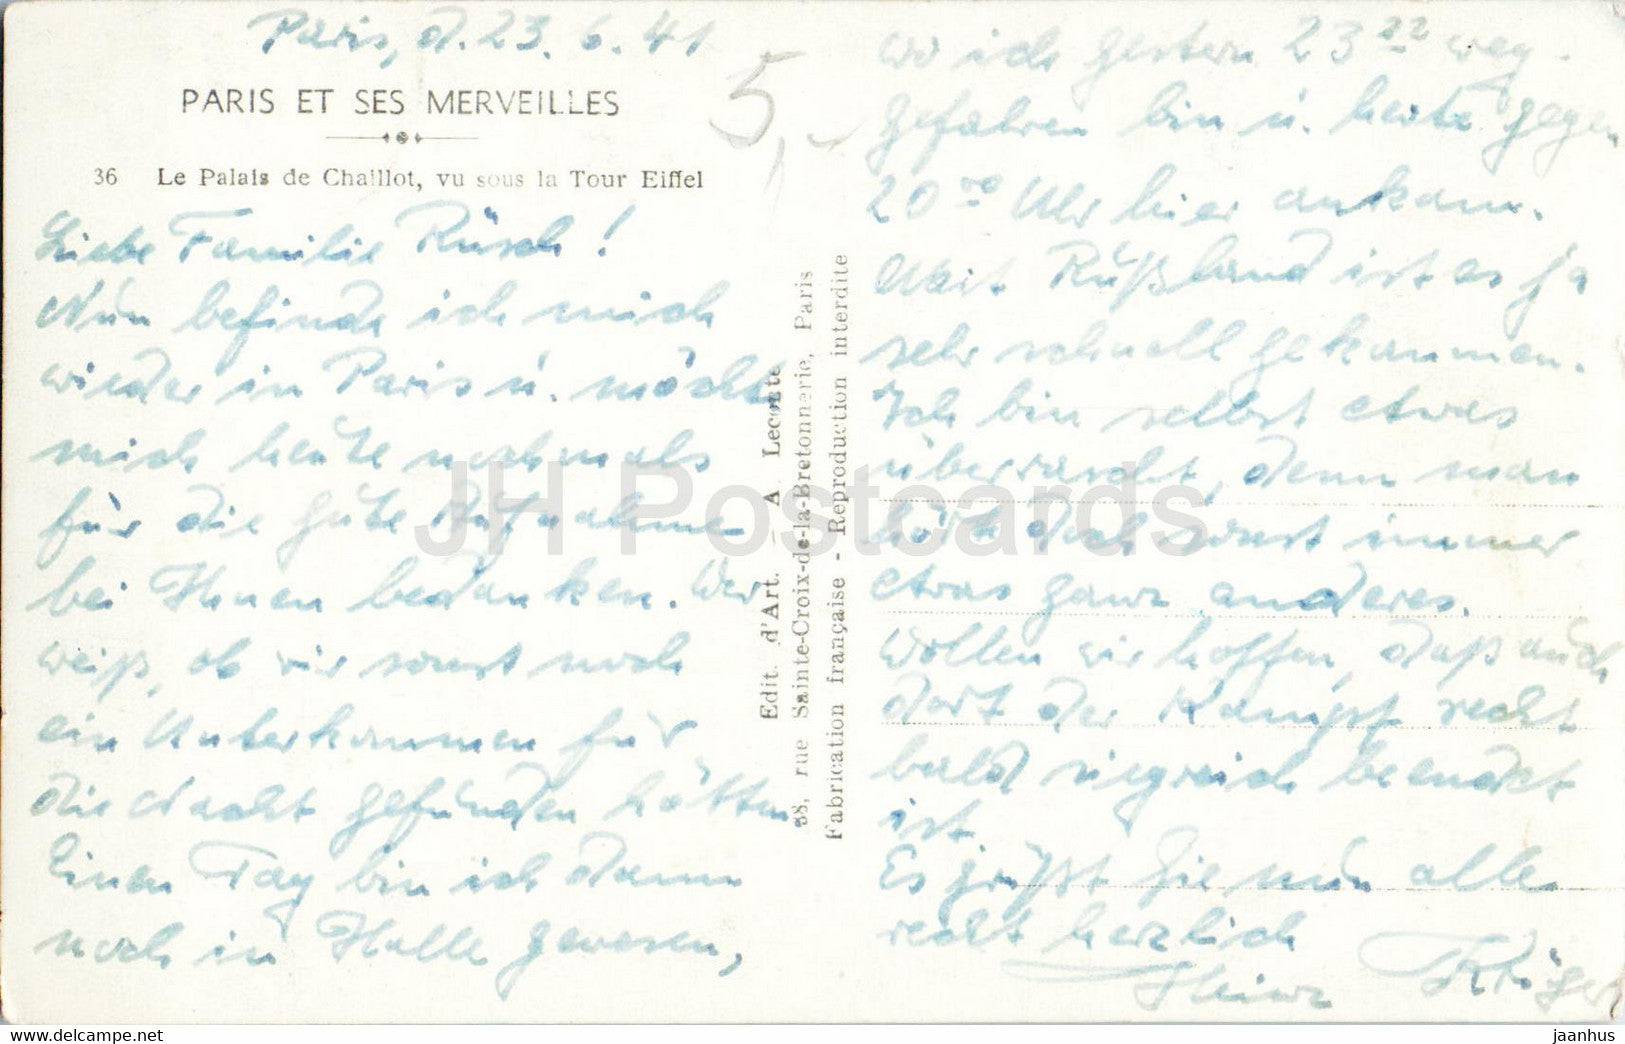 Paris, d. 23. 6. 41
PARIS ET SES MERVEILLES
36 Le Palais de Chaillot, vu sous la Tour Eiffel
Liebe Familie Rüsch!
Nun befinde ich mich
wieder in Paris u. möchte
mich heute nochmals
für die gute Aufnahme
bei Ihnen bedanken. Wer
weiß, ob wir sonst noch
ein Unterkommen für
die Nacht gefunden hätten
Einen Tag bin ich dann
noch in Halle gewesen,
5,-
Edit. d'Art. - A Leconte
38, rue Sainte-Croix-de-la-Bretonnerie, Paris
Fabrication française - Reproduction interdite
wo ich gestern 23 22 weg-
gefahren bin u. heute gegen
20 00 Uhr hier ankam.
Mit Rußland ist es ja
sehr schnell gekommen.
Ich bin selbst etwas
überrascht, denn man
hörte doch sonst immer
etwas ganz anderes.
Wollen wir hoffen, daß auch
dort der Kampf recht
bald siegreich beendet
ist.
Es grüßt Sie nun alle
recht herzlich
Heinz Krüger
JH Postcards
www.delcampe.net
jaanhus